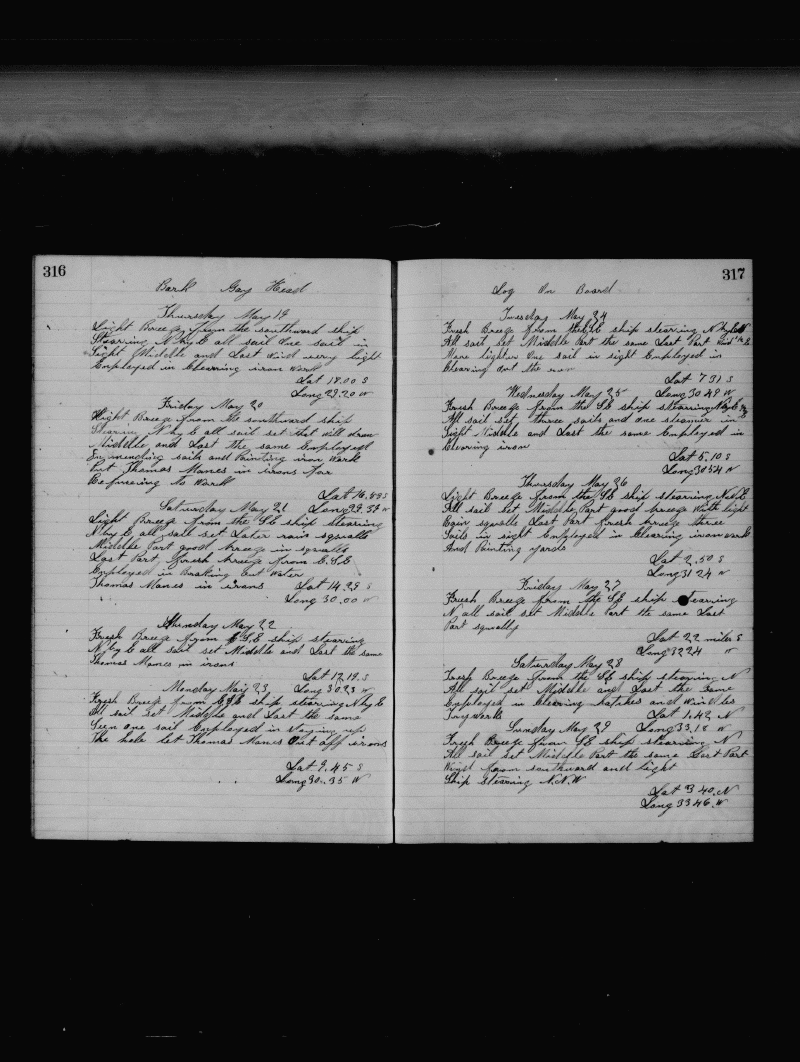 316
Bark Gay Head
Thursday May 19
Light Breeze from the southward ship
Stearing N by E all sail One sail in
Sight Middle and Last wind very light
Employed in Clearing iron work
Lat 18.00 S
Long 29.20 W
Friday May 20
Light Breeze from the southward ship
Stearin N by E all sail set that will draw
Middle and Last the same Employed
In mending sails and Painting iron Work
Put Thomas Manes in irons for
Refuseing to Work
Lat 16.58 S
Saturday May 21 Long 29.52 W
Light Breeze from the SE ship stearing
N by E all sail set Later rain squalls
Middle Part good breeze in squalls
Last Part fresh breeze from E.S.E
Employed in Breaking out Water
Thomas Manes in irons Lat 14.29 S
Long 30.00 W
Sunday May 22
Fresh Breeze from E.S.E ship stearing
N by E all sail set Middle and Last the same
Thomas Manes in irons
Lat 12.19. S
Monday May 23 Long 30.23 W
Fresh Breeze from ESE ship stearing N by E
All sail set Middle and Last the same
Seen one sail Employed in
The hole let Thomas Manes Out off irons
Lat 9.45 S
Long 30.35 W
317
Log On Board
Tuesday May 24
Fresh Breeze from the SE ship stearing N by
All sail set Middle Part the same Last Part Wind
More lighter One sail in sight Employed in
Clearing out the
Lat 7 31 S
Wednesday May 25 Long 30 49 W
Fresh Breeze from the SE ship stearing N by E
All sail set three sails and one steamer in
Sight Middle and Last the same Employed in
Clearing iron
Lat 5.10 S
Long 30 54 W
Thursday May 26
Light Breeze from the SE ship stearing N
All sail set Middle Part good breeze with light
Rain squalls Last Part fresh breeze three
Sails in sight Employed in Clearing iron work
And Painting yards
Lat 2.50 S
Long 31 24 W
Friday May 27
Fresh Breeze from the SE ship stearing
N all sail set Middle Part the same Last
Part squally
Lat 22 miles S
Long 32 24 W
Saturday May 28
Fresh Breeze from the SE ship stearing N
All sail set Middle and Last the same
Employed in Clearing hatches and windlas
Tryworks Lat 1.42 N
Sunday May 29 Long 33.18 W
Fresh Breeze from SE ship stearing N
All sail set Middle Part the same Last Part
Wind from southward and light
Ship stearing N.N.W
Lat 3 40. N
Long 33 46. W